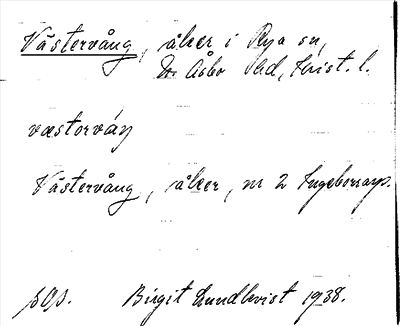 Västervång, åker i Rya sn,
N. Åsbo hd, Krist. l.
væstorváŋ
Västervång, åker, nr 2 Ingeborrarp.
Birgit Lundkvist 1938.